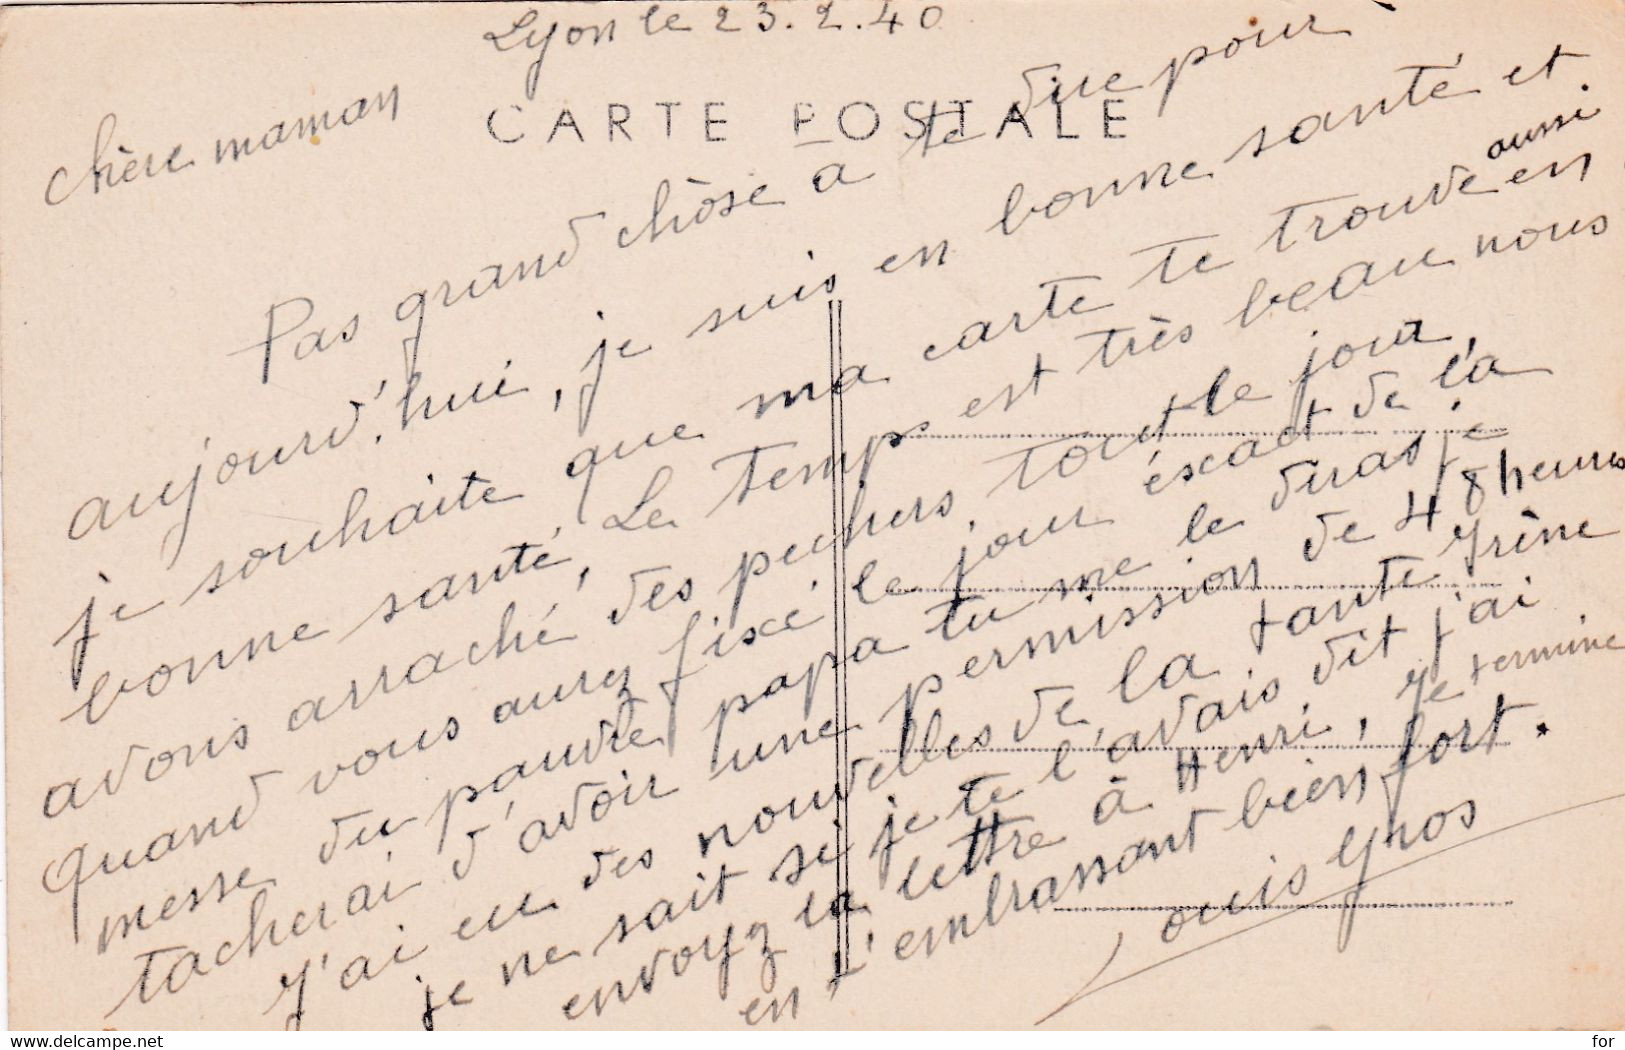 Lyon le 23.2.40
CARTE POSTALE
chère maman
Pas grand chôse a te dire pour
aujourd'hui, je suis en bonne santé et
je souhaite que ma carte te trouve aussi en
bonne santé, Le temps est très beau nous
avons arraché des pechers tout le jour,
quand vous aurez fixé le jour éxact de la
messe du pauvre papa tu me le diras je
tacherai d'avoir une permission de 48 heures
J'ai eu des nouvelles de la tante Irène
je ne sait si je te l'avais dit j'ai
envoyez la lettre à Henri, Je termine
en t'embrassant bien fort.
Louis Gros
www.delcampe.net
for